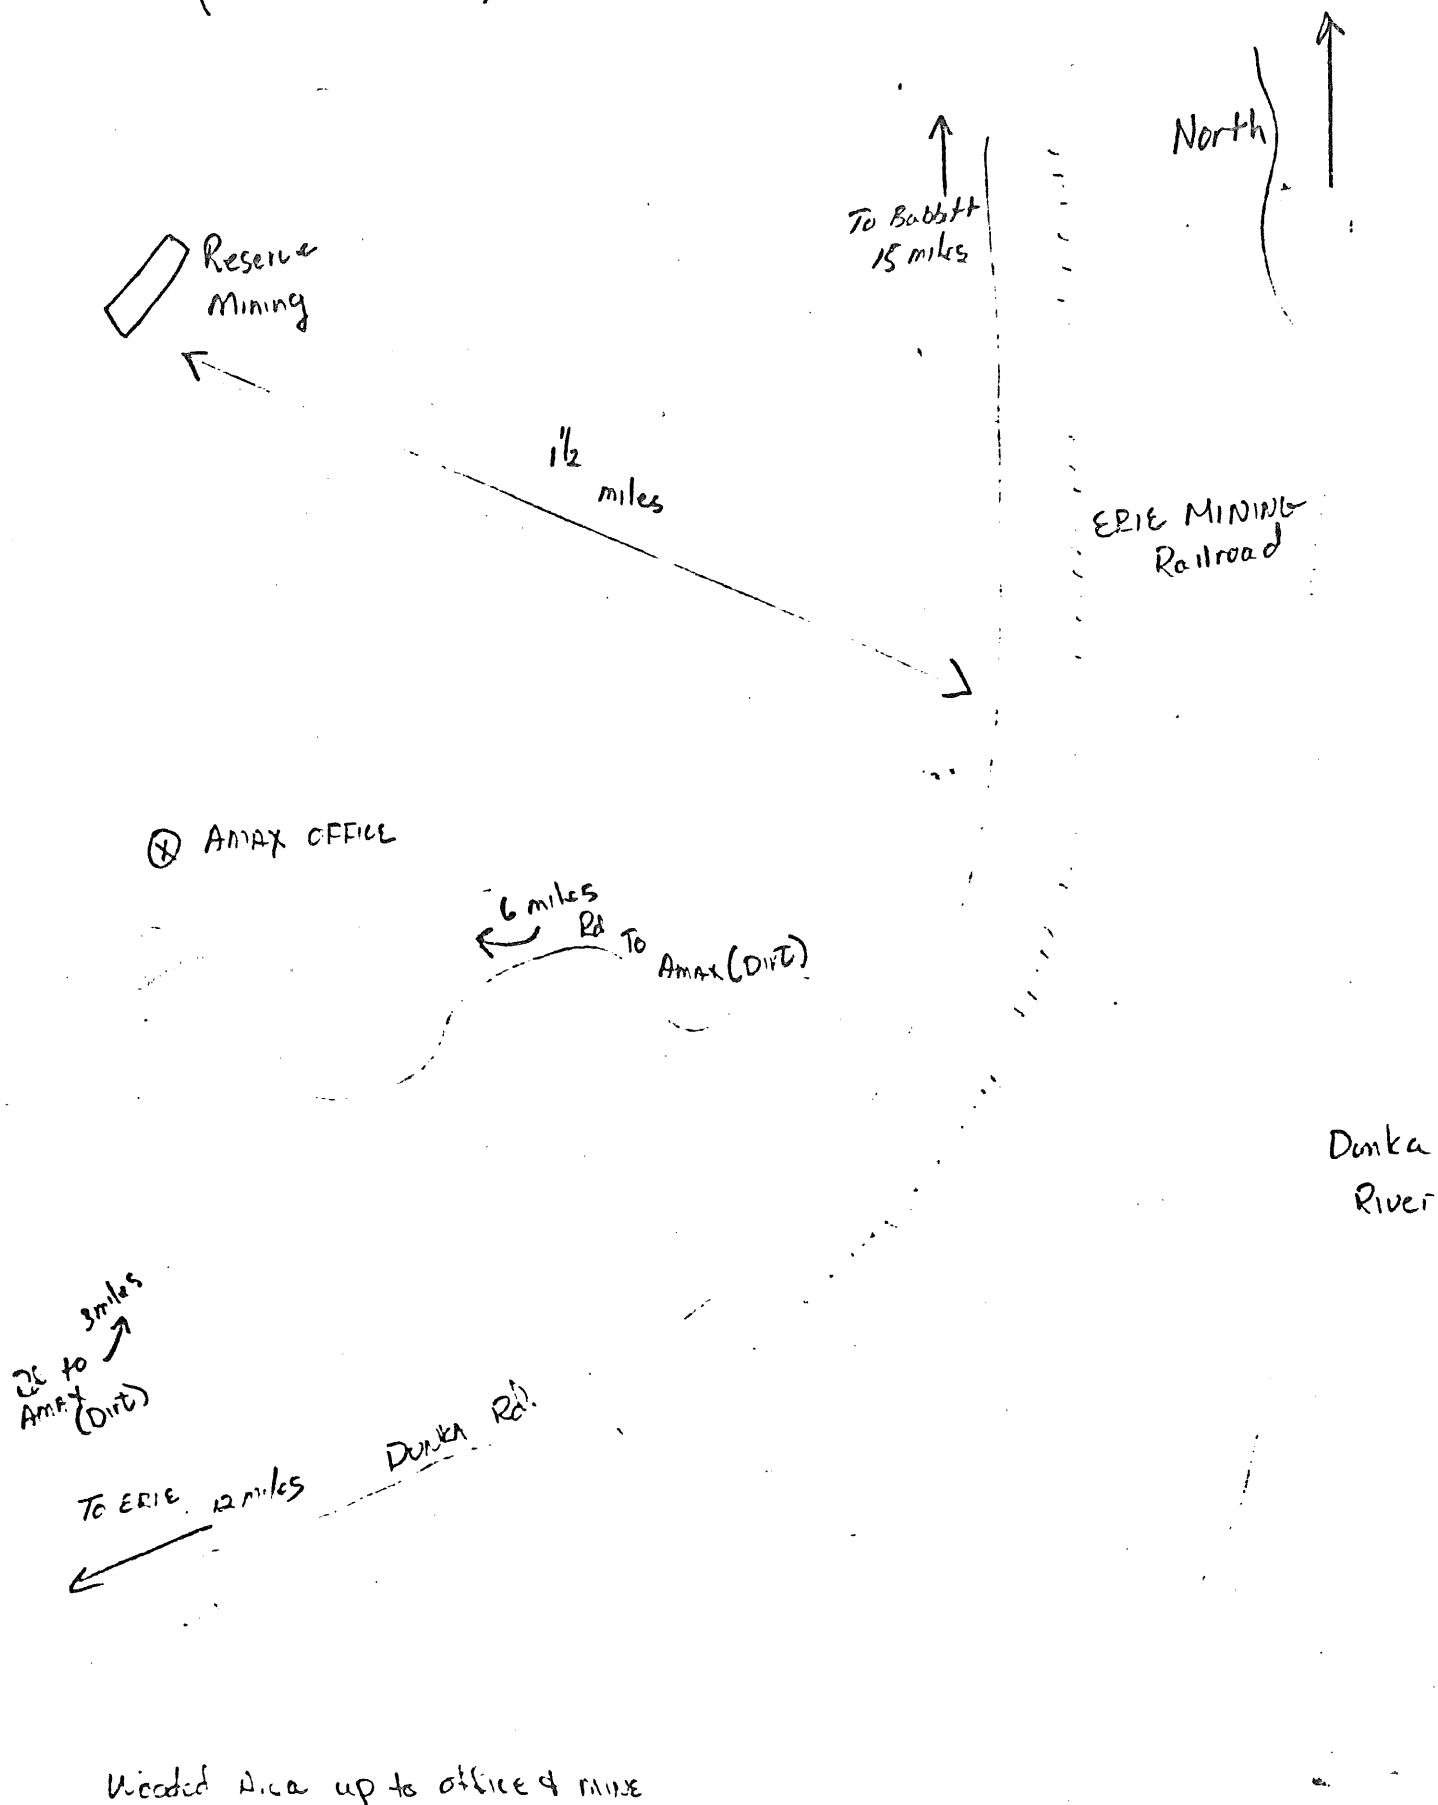 North
To Babbitt
15 miles
Reserve
Mining
1 1/2
miles
ERIE MINING
Railroad
X AMAX OFFICE
6 miles
Rd To
AMAX (Dirt)
Dunka
River
3 miles
Rd to
AMAX
(Dirt)
DUNKA Rd.
To ERIE 12 miles
Wooded Area up to office & mine